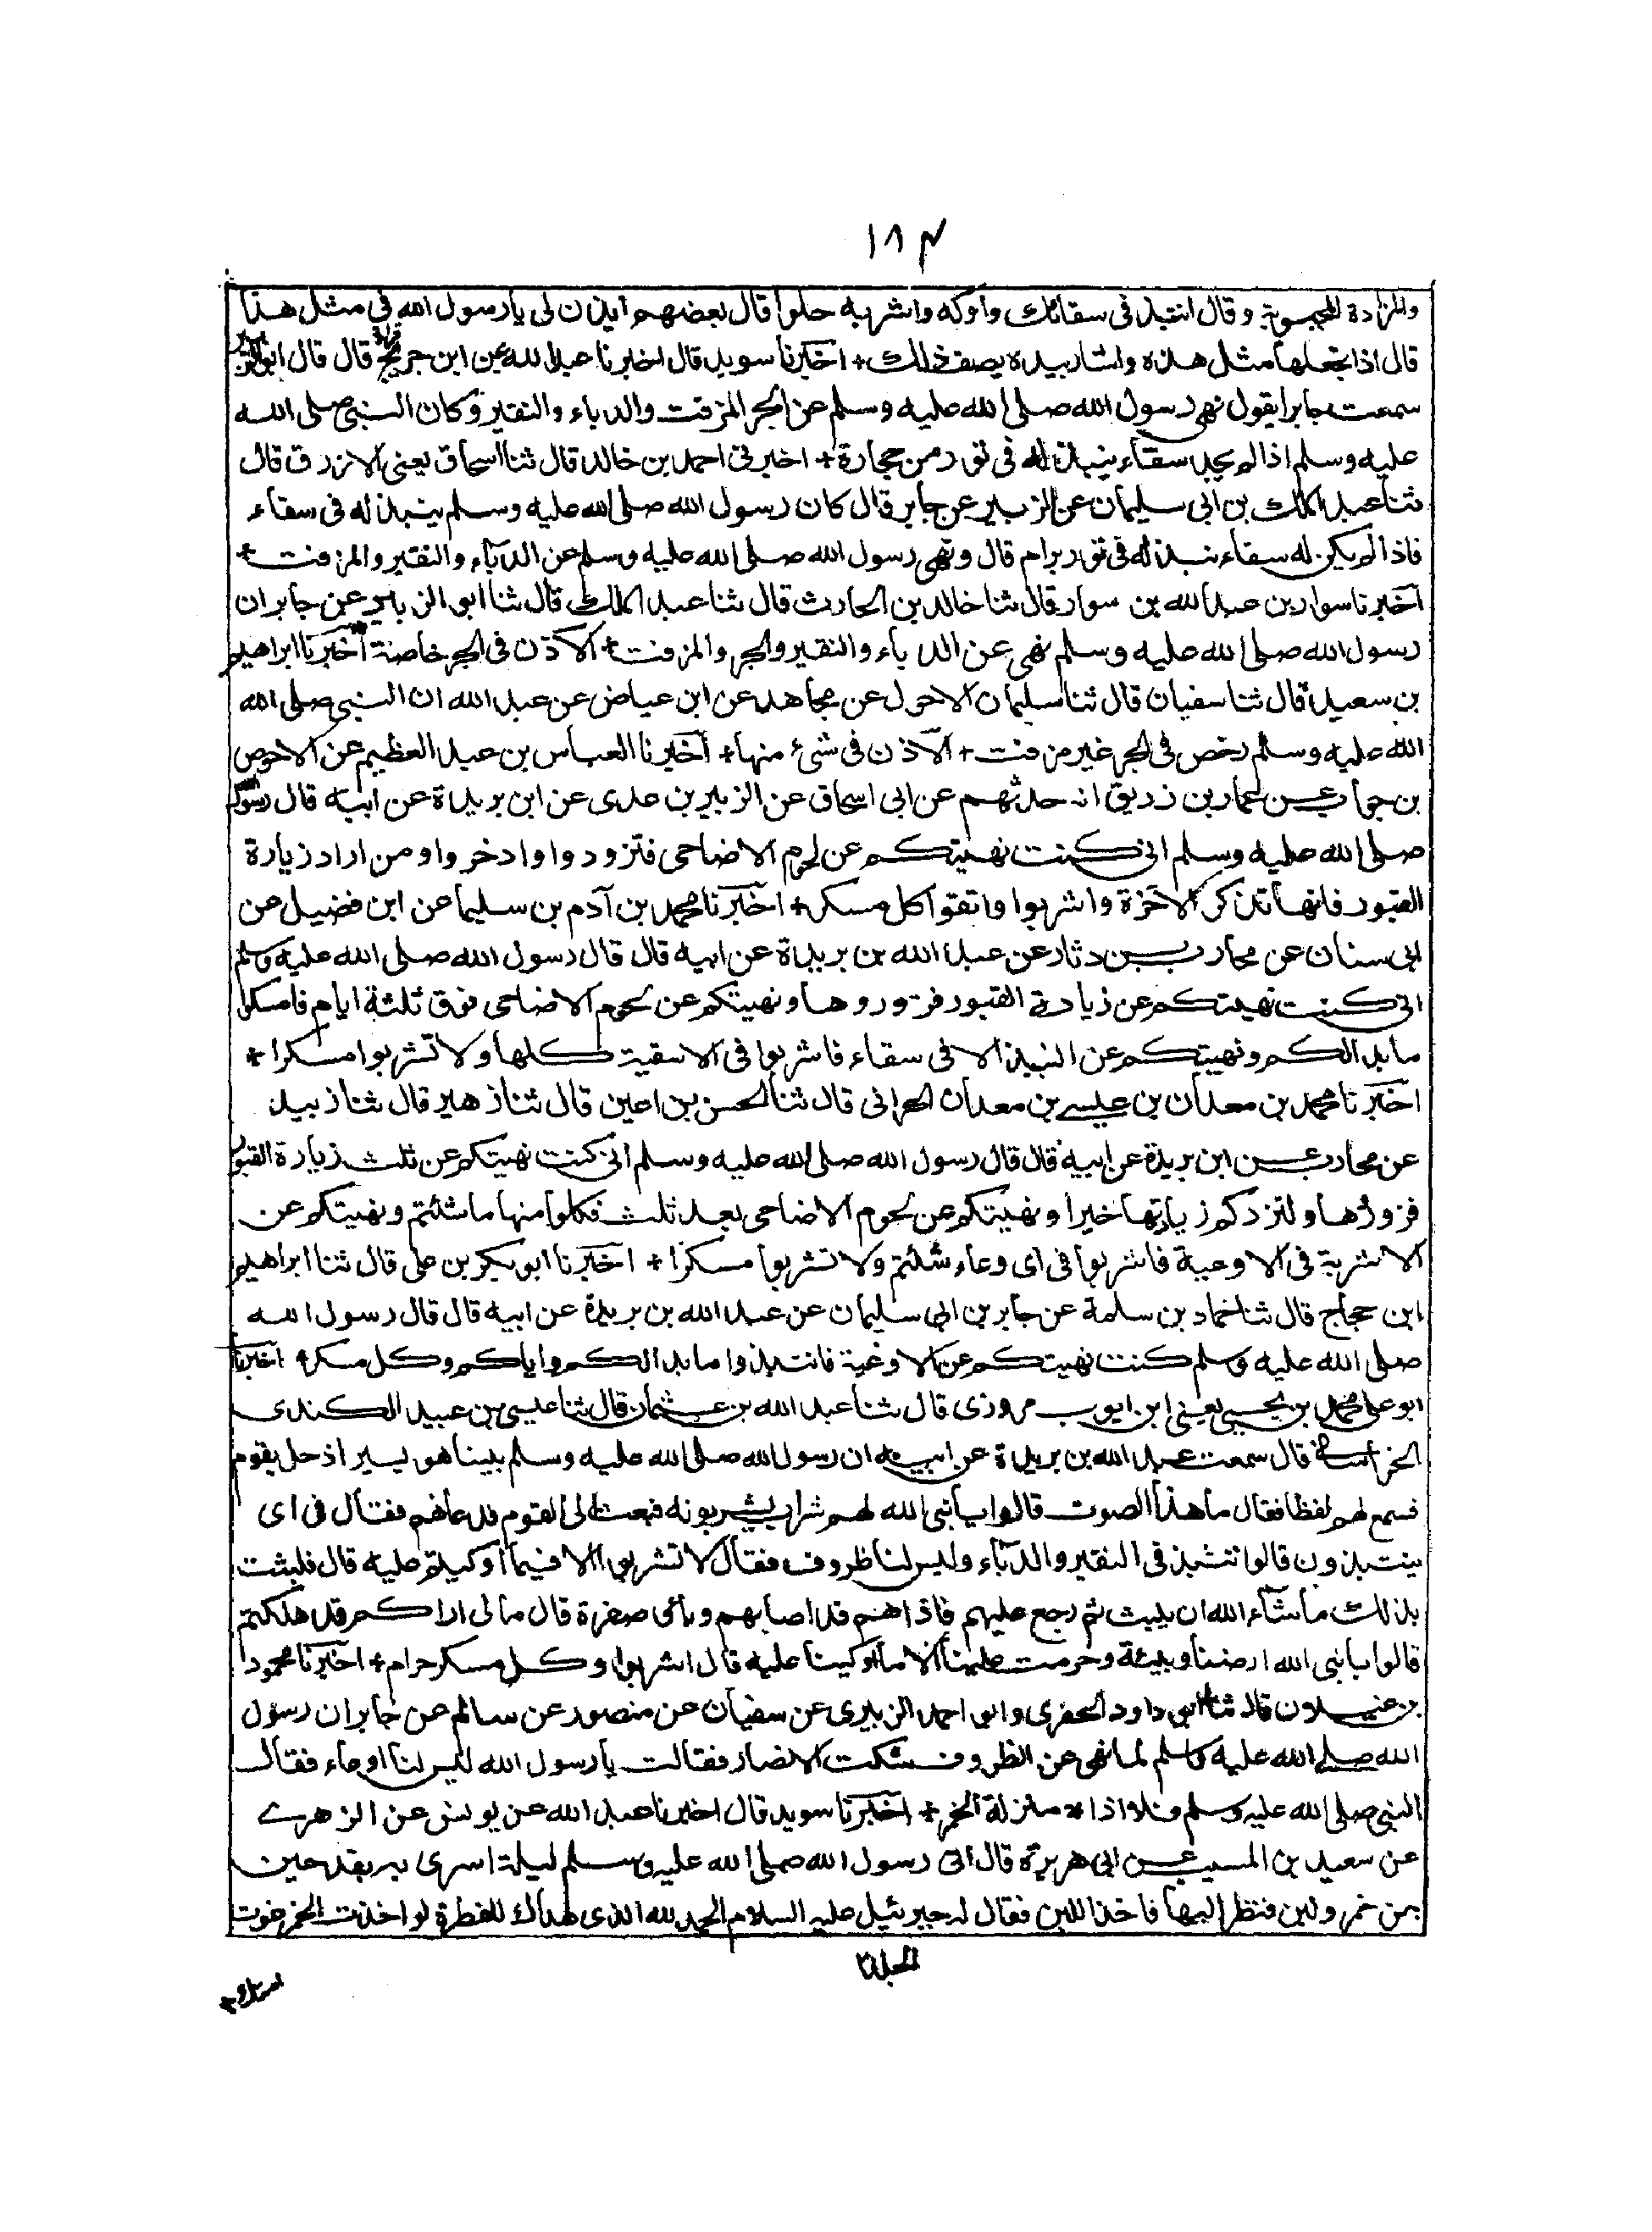 ١٨٣
والمزادة المجبوبة وقال انتبذ فى سقائك واوكه واشربه حلوا قال بعضهم ايذن لى يا رسول الله فى مثل هذا
قال اذا تجعلها مثل هذه واشار بيده يصف ذلك + اخبرنا سويد قال اخبرنا عبد الله عن ابن جريج قال قال ابو الزبير
سمعت جابرا يقول نهى رسول الله صلى الله عليه وسلم عن الجر المزفت والدباء والنقير وكان النبى صلى الله
عليه وسلم اذا لم يجد سقاء ينبذ له فى تور من حجارة + اخبرنى احمد بن خالد قال ثنا اسحاق يعنى الازرق قال
ثنا عبد الملك بن ابى سليمان عن الزبير عن جابر قال كان رسول الله صلى الله عليه وسلم ينبذ له فى سقاء
فاذا لم يكن له سقاء ننبذ له فى تور برام قال ونهى رسول الله صلى الله عليه وسلم عن الدباء والنقير والمزفت +
اخبرنا سوار بن عبد الله بن سوار قال ثنا خالد بن الحارث قال ثنا عبد الملك قال ثنا ابو الزبير عن جابر ان
رسول الله صلى الله عليه وسلم نهى عن الدباء والنقير والجر والمزفت + الاذن فى الجر خاصة اخبرنا ابراهيم
بن سعيد قال ثنا سفيان قال ثنا سليمان الاحول عن مجاهد عن ابن عياض عن عبد الله ان النبى صلى الله
الله عليه وسلم رخص فى الجر غير مزفت + الاذن فى شئ منها + اخبرنا العباس بن عبد العظيم عن الاحوص
بن جواب عن عمار بن زريق انه حدثهم عن ابى اسحاق عن الزبير بن عدى عن ابن بريدة عن ابيه قال رسول
صلى الله عليه وسلم انى كنت نهيتكم عن لحوم الاضاحى فتزودوا وادخروا ومن اراد زيارة
القبور فانها تذكر الاخرة واشربوا واتقوا كل مسكر + اخبرنا محمد بن آدم بن سليما عن ابن فضيل عن
ابى سنان عن محارب بن دثار عن عبد الله بن بريدة عن ابيه قال قال رسول الله صلى الله عليه وسلم
انى كنت نهيتكم عن زيارة القبور فزوروها ونهيتكم عن لحوم الاضاحى فوق ثلثة ايام فامسكوا
ما بدا لكم ونهيتكم عن النبيذ الا فى سقاء فاشربوا فى الاسقية كلها ولا تشربوا مسكرا +
اخبرنا محمد بن معدان بن عيسى بن معدان الحرانى قال ثنا الحسن بن اعين قال ثنا زهير قال ثنا زبيد
عن محارب عن ابن بريدة عن ابيه قال قال رسول الله صلى الله عليه وسلم انى كنت نهيتكم عن ثلث زيارة القبور
فزوروها ولتزدكم زيارتها خيرا ونهيتكم عن لحوم الاضاحى بعد ثلث فكلوا منها ما شئتم ونهيتكم عن
الاشربة فى الاوعية فاشربوا فى اى وعاء شئتم ولا تشربوا مسكرا + اخبرنا ابو بكر بن على قال ثنا ابراهيم
ابن حجاج قال ثنا حماد بن سلمة عن جابر بن ابى سليمان عن عبد الله بن بريدة عن ابيه قال قال رسول الله
صلى الله عليه وسلم كنت نهيتكم عن الاوعية فانتبذوا ما بدا لكم واياكم وكل مسكر + اخبرنا
ابو على محمد بن يحيى يعنى ابن ايوب مروزى قال ثنا عبد الله بن عثمان قال ثنا عيسى بن عبيد الكندى
الخراسانى قال سمعت عبد الله بن بريدة عن ابيه ان رسول الله صلى الله عليه وسلم بينا هو يسير اذ حل بقوم
فسمع لهم لفظا فقال ما هذا الصوت قالوا يا نبى الله لهم شراب يشربونه فبعث الى القوم فدعاهم فقال فى اى
ينتبذون قالوا ننتبذ فى النقير والدباء وليس لنا ظروف فقال لا تشربوا الا فيما اوكيتم عليه قال فلبثت
بذلك ما شاء الله ان يلبث ثم رجع عليهم فاذا هم قد اصابهم وبائى صفرة قال مالى اراكم قد هلكتم
قالوا يا نبى الله ارضنا وبيئة وحرمت علينا الا ما اوكينا عليه قال اشربوا وكل مسكر حرام + اخبرنا محمود
بن غيلان قال ثنا ابى داود الحفرى وابى احمد الزبيرى عن سفيان عن منصور عن سالم عن جابر ان رسول
الله صلى الله عليه وسلم لما نهى عن الظروف شكت الانصار فقالت يا رسول الله ليس لنا اوعاء فقال
النبى صلى الله عليه وسلم فلا اذا * منزلة الخمر + اخبرنا سويد قال اخبرنا عبد الله عن يونس عن الزهرى
عن سعيد بن المسيب عن ابى هريرة قال اتى رسول الله صلى الله عليه وسلم ليلة اسرى به بقدحين
بمن خمر ولبن فنظر اليهما فاخذ اللبن فقال له جبرئيل عليه السلام الحمد لله الذى هداك للفطرة لو اخذت الخمر غوت
امتك +